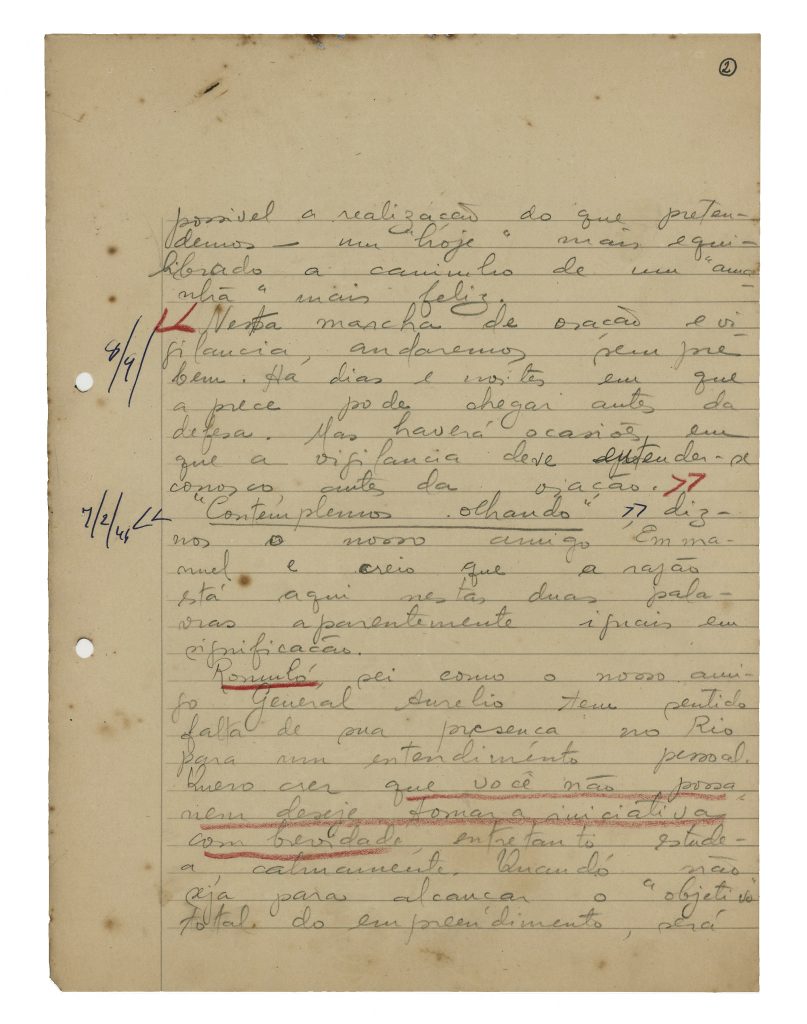 2
possivel a realização do que preten-
demos — um "hoje" mais equi-
librado a caminho de um "ama-
nhã" mais feliz.
<< Nesta marcha de oração e vi
8/9/
gilancia, andaremos sempre
bem. Há dias e noites em que
a prece pode chegar antes da
defesa. Mas haverá ocasiões em
que a vigilancia deve entender-se
conosco, antes da oração. >>
7/2/46 << "Contemplemos olhando" >> diz-
nos o nosso amigo Emma-
nuel e creio que a razão
está aqui nestas duas pala-
vras aparentemente iguais em
significação.
Romulo, sei como o nosso ami-
go General Aurelio tem sentido
falta de sua presença no Rio
para um entendimento pessoal.
Quero crer que você não possa,
nem deseje tomar a iniciativa
com brevidade, entretanto estude-
a, calmamente. Quando não
seja para alcançar o "objetivo"
total do empreendimento, será